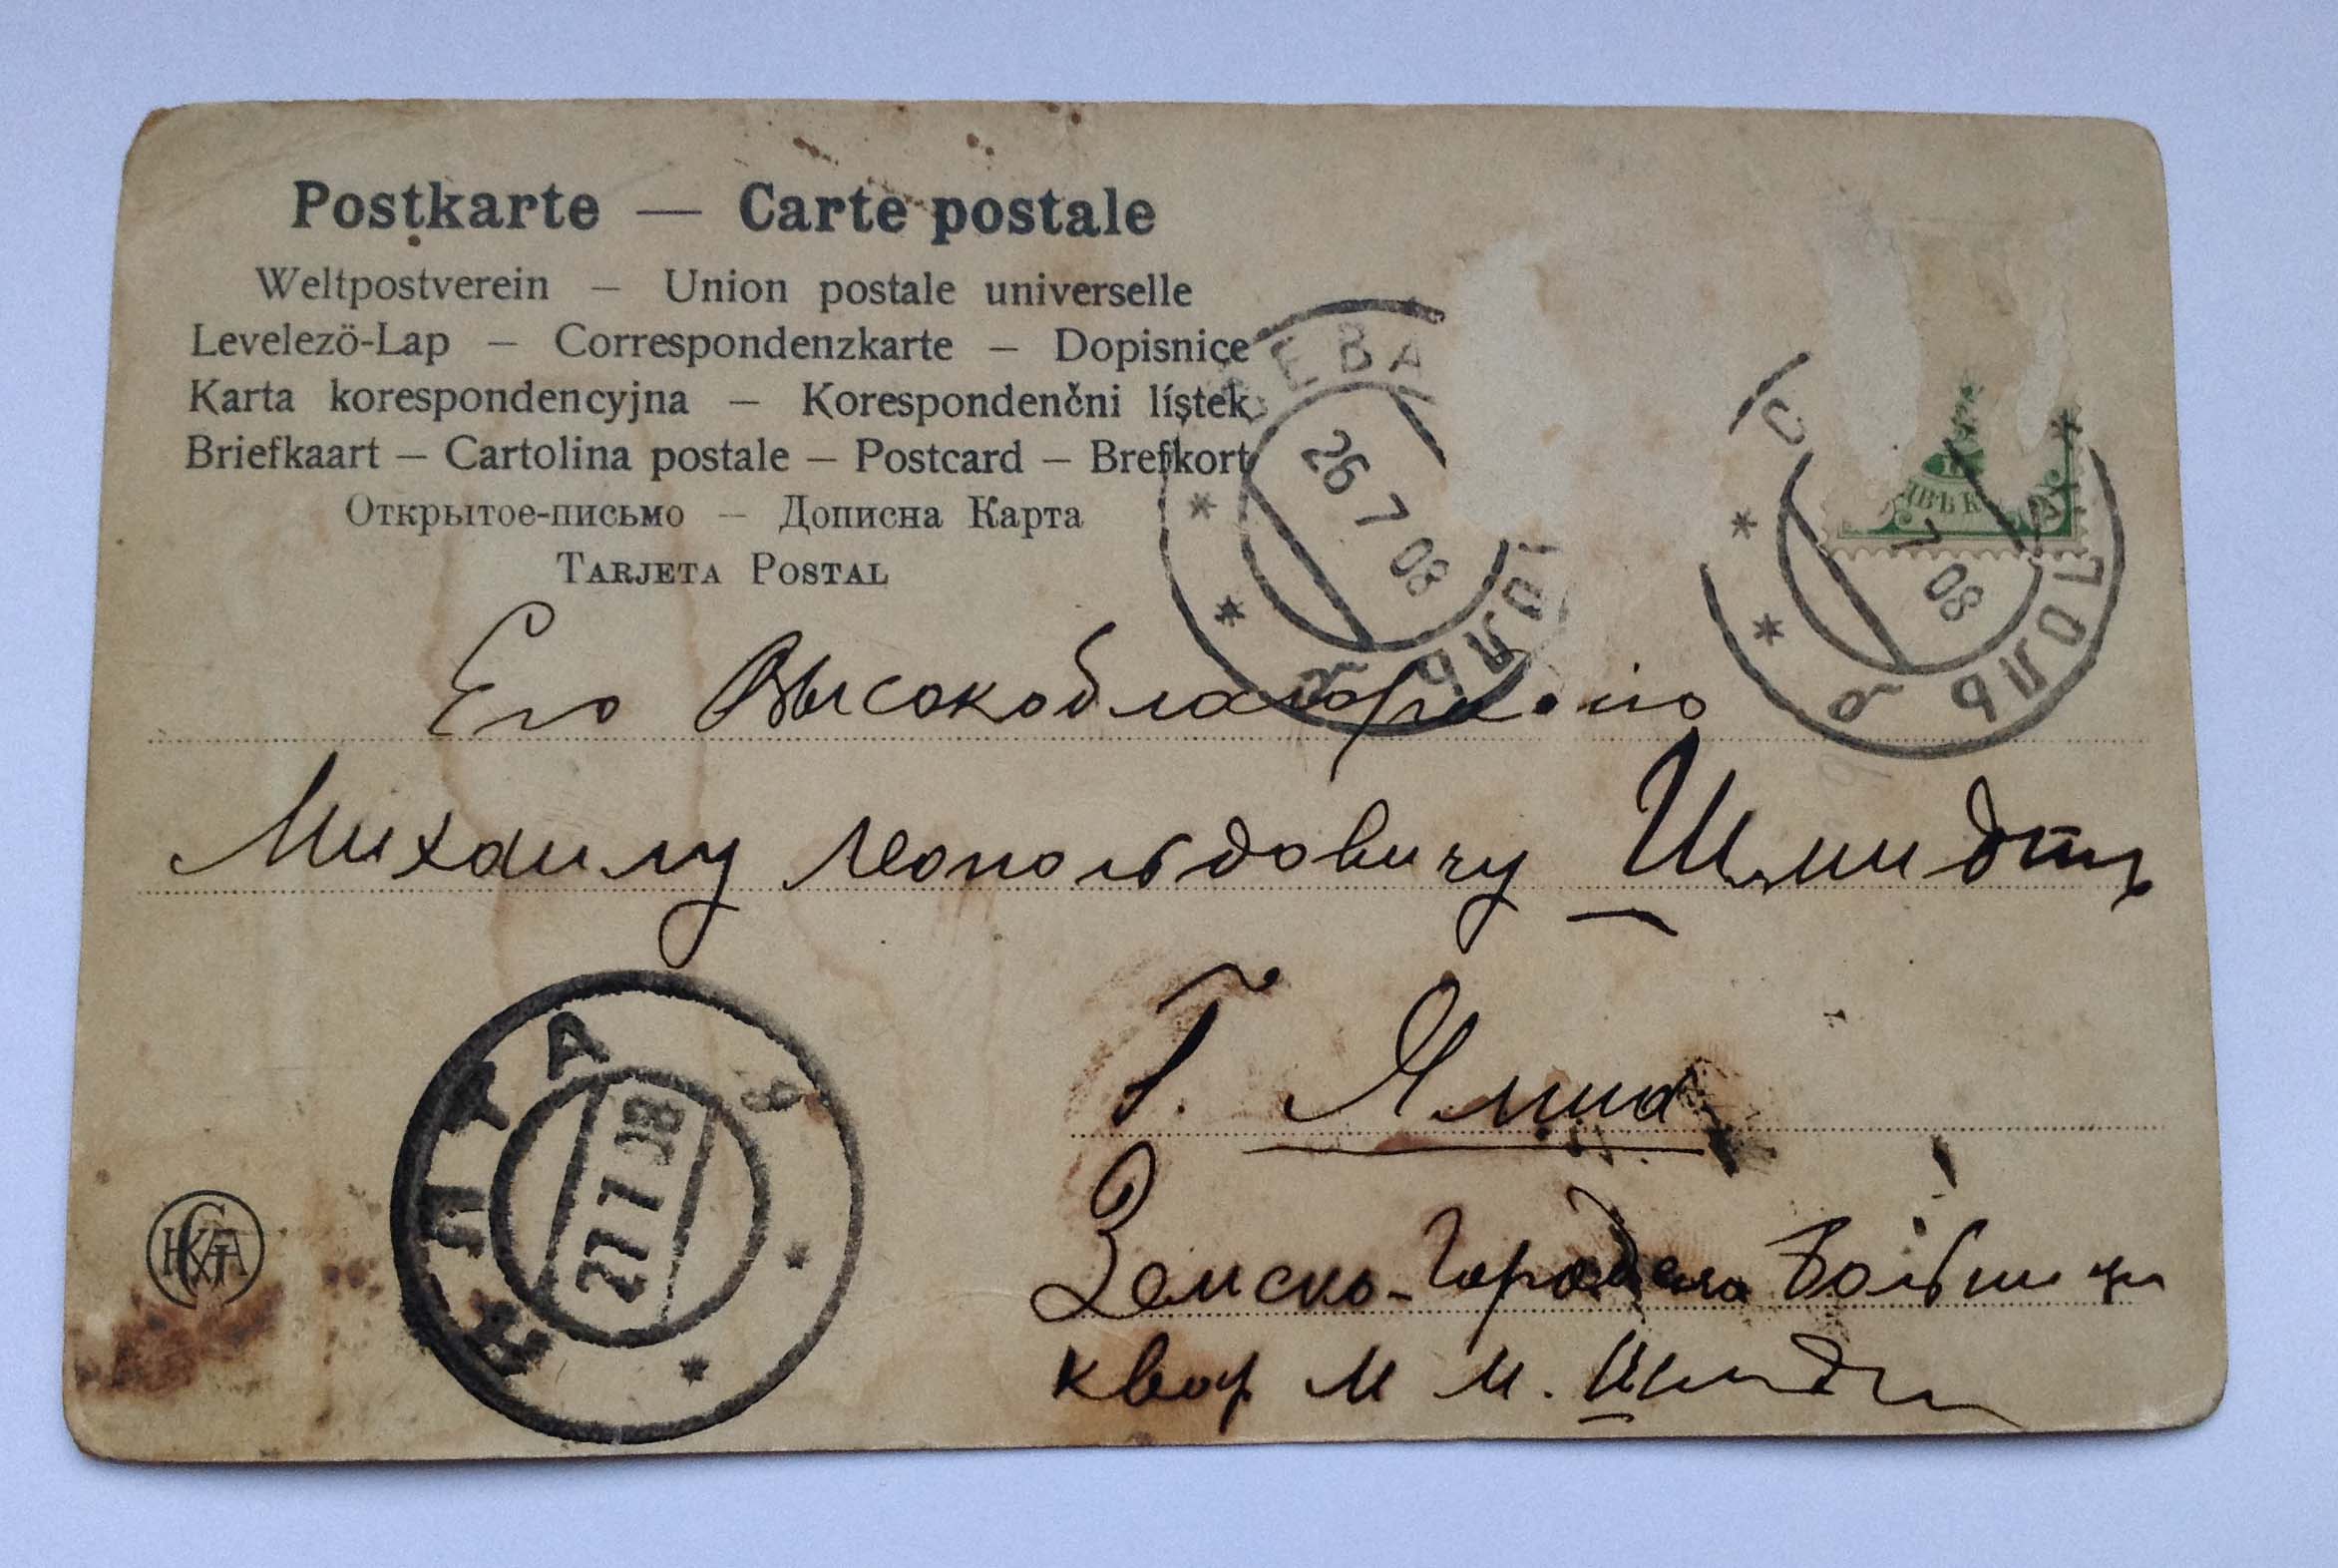 Postkarte — Carte postale
Weltpostverein — Union postale universelle
Levelezö-Lap — Correspondenzkarte — Dopisnice
Karta korespondencyjna — Korespondenčni lístek
Briefkaart — Cartolina postale — Postcard — Brefkort
Открытое-письмо — Дописна Карта
Tarjeta Postal
ЕВА ПОЛЬ
26 7 08
С ПОЛЬ
7 08
Его
Михаилу Леопольдовичу Шмидтъ
Г. Ялта
Земско-Городская
кварт М М. Шмидтъ
ЯЛТА
27 7 08